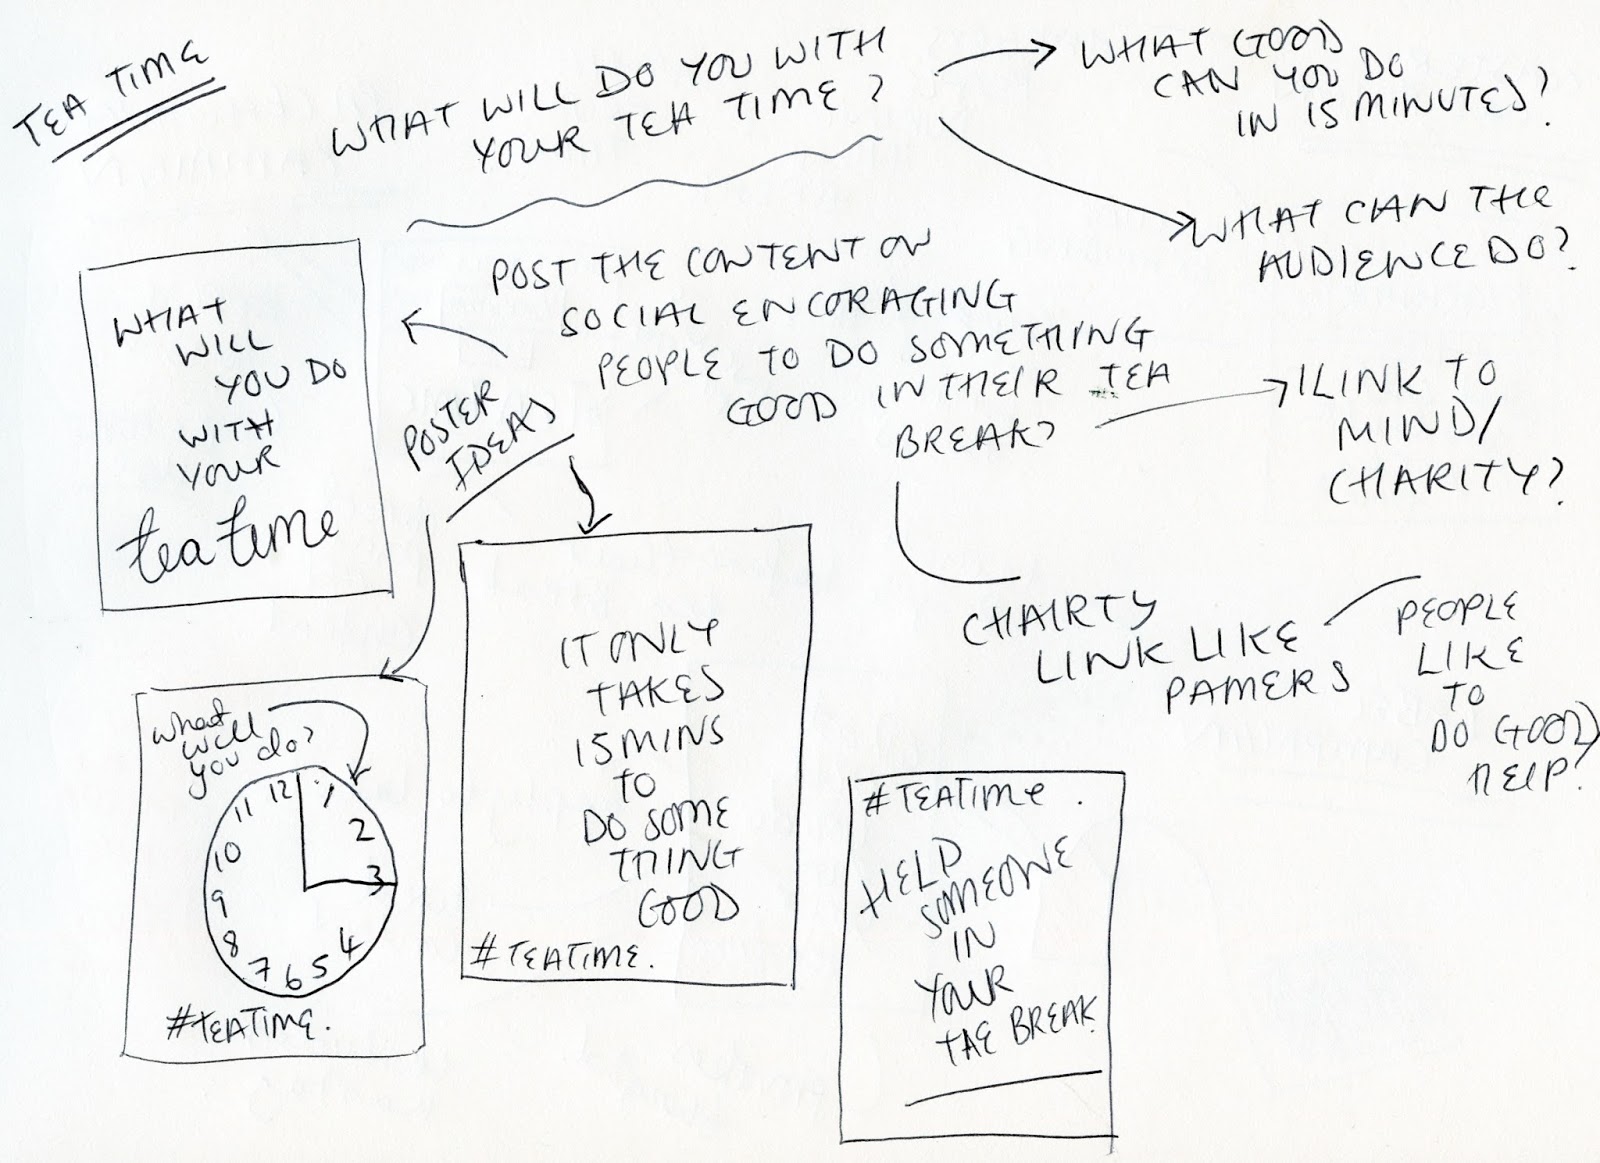 TEA TIME
WHAT WILL DO YOU WITH
YOUR TEA TIME?
WHAT GOOD
CAN YOU DO
IN 15 MINUTES?
WHAT CAN THE
AUDIENCE DO?
POST THE CONTENT ON
SOCIAL ENCORAGING
PEOPLE TO DO SOMETHING
GOOD IN THEIR TEA
BREAK?
LINK TO
MIND/
CHARITY?
CHAIRTY
LINK LIKE
PAMERS
PEOPLE
LIKE
TO
DO GOOD/
HELP?
POSTER
IDEAS
WHAT
WILL
YOU DO
WITH
YOUR
tea time
What
will
you do?
12
1
2
3
4
5
6
7
8
9
10
11
#TEATIME.
IT ONLY
TAKES
15 MINS
TO
DO SOME
THING
GOOD
#TEATIME.
#TEATIME.
HELP
SOMEONE
IN
YOUR
TAE BREAK